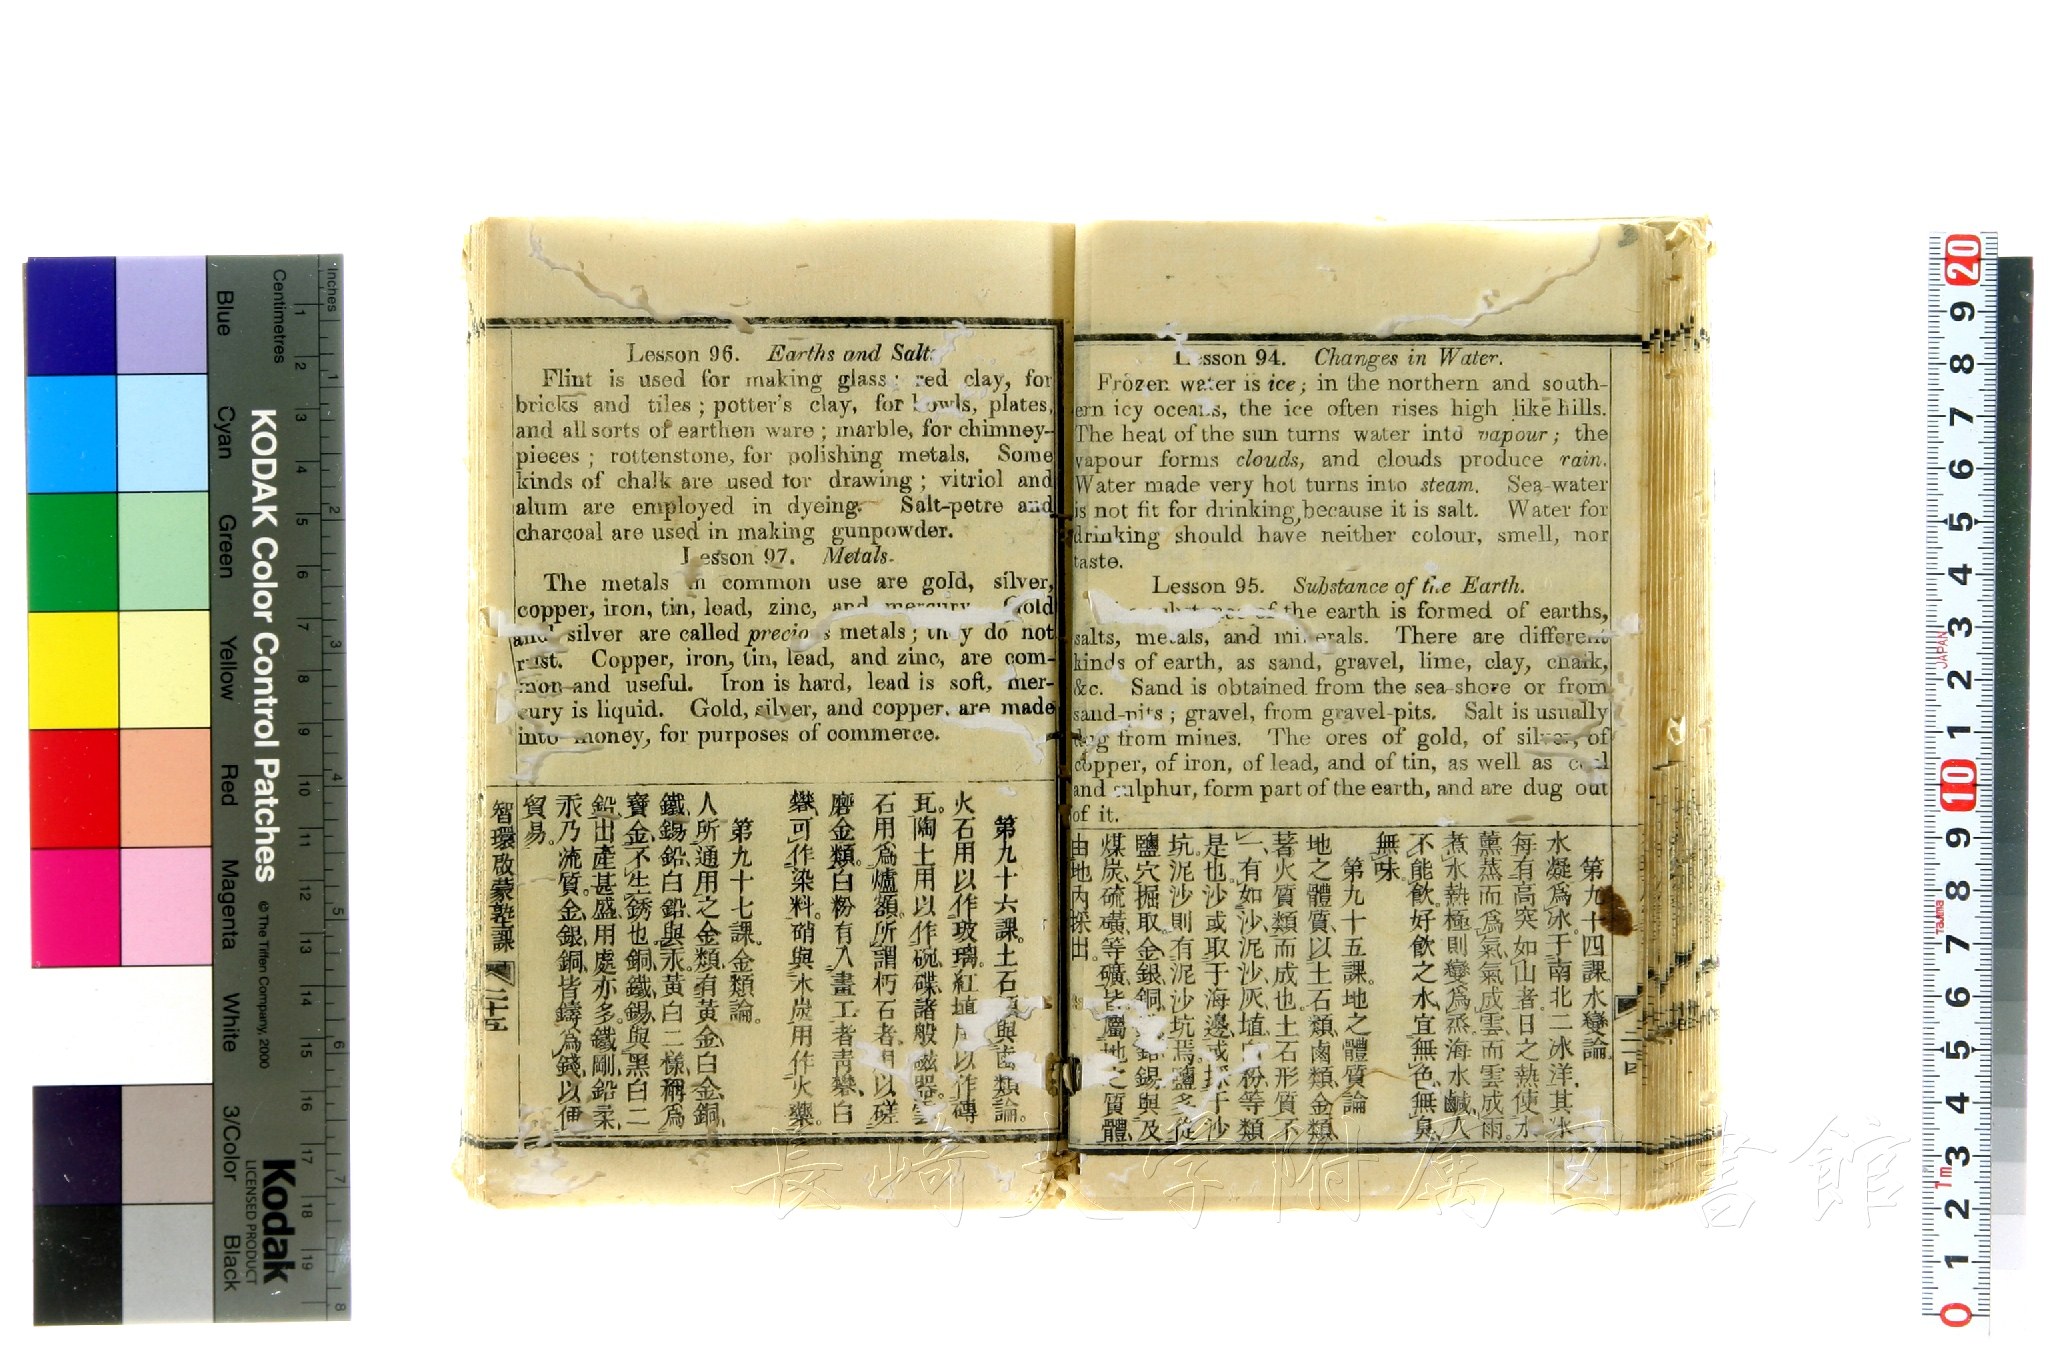 Lesson 94. Changes in Water.
Frozen water is ice; in the northern and south-
ern icy oceans, the ice often rises high like hills.
The heat of the sun turns water into vapour; the
vapour forms clouds, and clouds produce rain.
Water made very hot turns into steam. Sea-water
is not fit for drinking, because it is salt. Water for
drinking should have neither colour, smell, nor
taste.
Lesson 95. Substance of the Earth.
substance of the earth is formed of earths,
salts, metals, and minerals. There are different
kinds of earth, as sand, gravel, lime, clay, chalk,
&c. Sand is obtained from the sea-shore or from
sand-pits; gravel, from gravel-pits. Salt is usually
dug from mines. The ores of gold, of silver, of
copper, of iron, of lead, and of tin, as well as coal
and sulphur, form part of the earth, and are dug out
of it.
第九十四課。水變論。
水凝爲冰。于南北二冰洋、其冰
每有高突如山者。日之熱使水
薰蒸而爲氣、氣成雲、而雲成雨。
煮水熱極則變爲烝。海水鹹、人
不能飲。好飲之水、宜無色、無臭、
無味。
第九十五課。地之體質論
地之體質、以土石類、鹵類、金類、
著火質類而成也。土石形質不
一、有如沙、泥沙、灰、埴、白粉等類
是也。沙或取于海邊、或採于沙
坑。泥沙則有泥沙坑焉。鹽多從
鹽穴掘取。金銀銅鉛錫、與及
煤炭、硫磺、等礦、皆屬地之質體、
由地內採出。
二十四
Lesson 96. Earths and Salts.
Flint is used for making glass; red clay, for
bricks and tiles; potter's clay, for bowls, plates,
and all sorts of earthen ware; marble, for chimney-
pieces; rottenstone, for polishing metals. Some
kinds of chalk are used for drawing; vitriol and
alum are employed in dyeing. Salt-petre and
charcoal are used in making gunpowder.
Lesson 97. Metals.
The metals in common use are gold, silver,
copper, iron, tin, lead, zinc, and mercury. Gold
and silver are called precious metals; they do not
rust. Copper, iron, tin, lead, and zinc, are com-
mon and useful. Iron is hard, lead is soft, mer-
cury is liquid. Gold, silver, and copper, are made
into money, for purposes of commerce.
第九十六課。土石類與鹵類論。
火石用以作玻璃。紅埴用以作磚
瓦。陶土用以作碗、碟、諸般磁器。
石用爲爐額。所謂朽石者、用以磋
磨金類。白粉有入畫工者。靑礬、白
礬、可作染料。硝與木炭用作火藥。
第九十七課。金類論。
人所通用之金類、有黃金、白金、銅、
鐵、錫、鉛、白鉛、與汞。黃白二樣、稱爲
寶金、不生銹也。銅、鐵、錫、與黑白二
鉛、出產甚盛、用處亦多。鐵剛、鉛柔、
汞乃流質。金、銀、銅、皆鑄爲錢、以便
貿易。
智環啟蒙塾課 二十五
長崎大学附属図書館
KODAK Color Control Patches
© The Tiffen Company, 2000
Kodak
LICENSED PRODUCT
Inches
1 2 3 4 5 6 7 8
Centimetres
1 2 3 4 5 6 7 8 9 10 11 12 13 14 15 16 17 18 19
Blue
Cyan
Green
Yellow
Red
Magenta
White
3/Color
Black
20 9 8 7 6 5 4 3 2 1 10 9 8 7 6 5 4 3 2 1 0
JAPAN
TaJima
1m